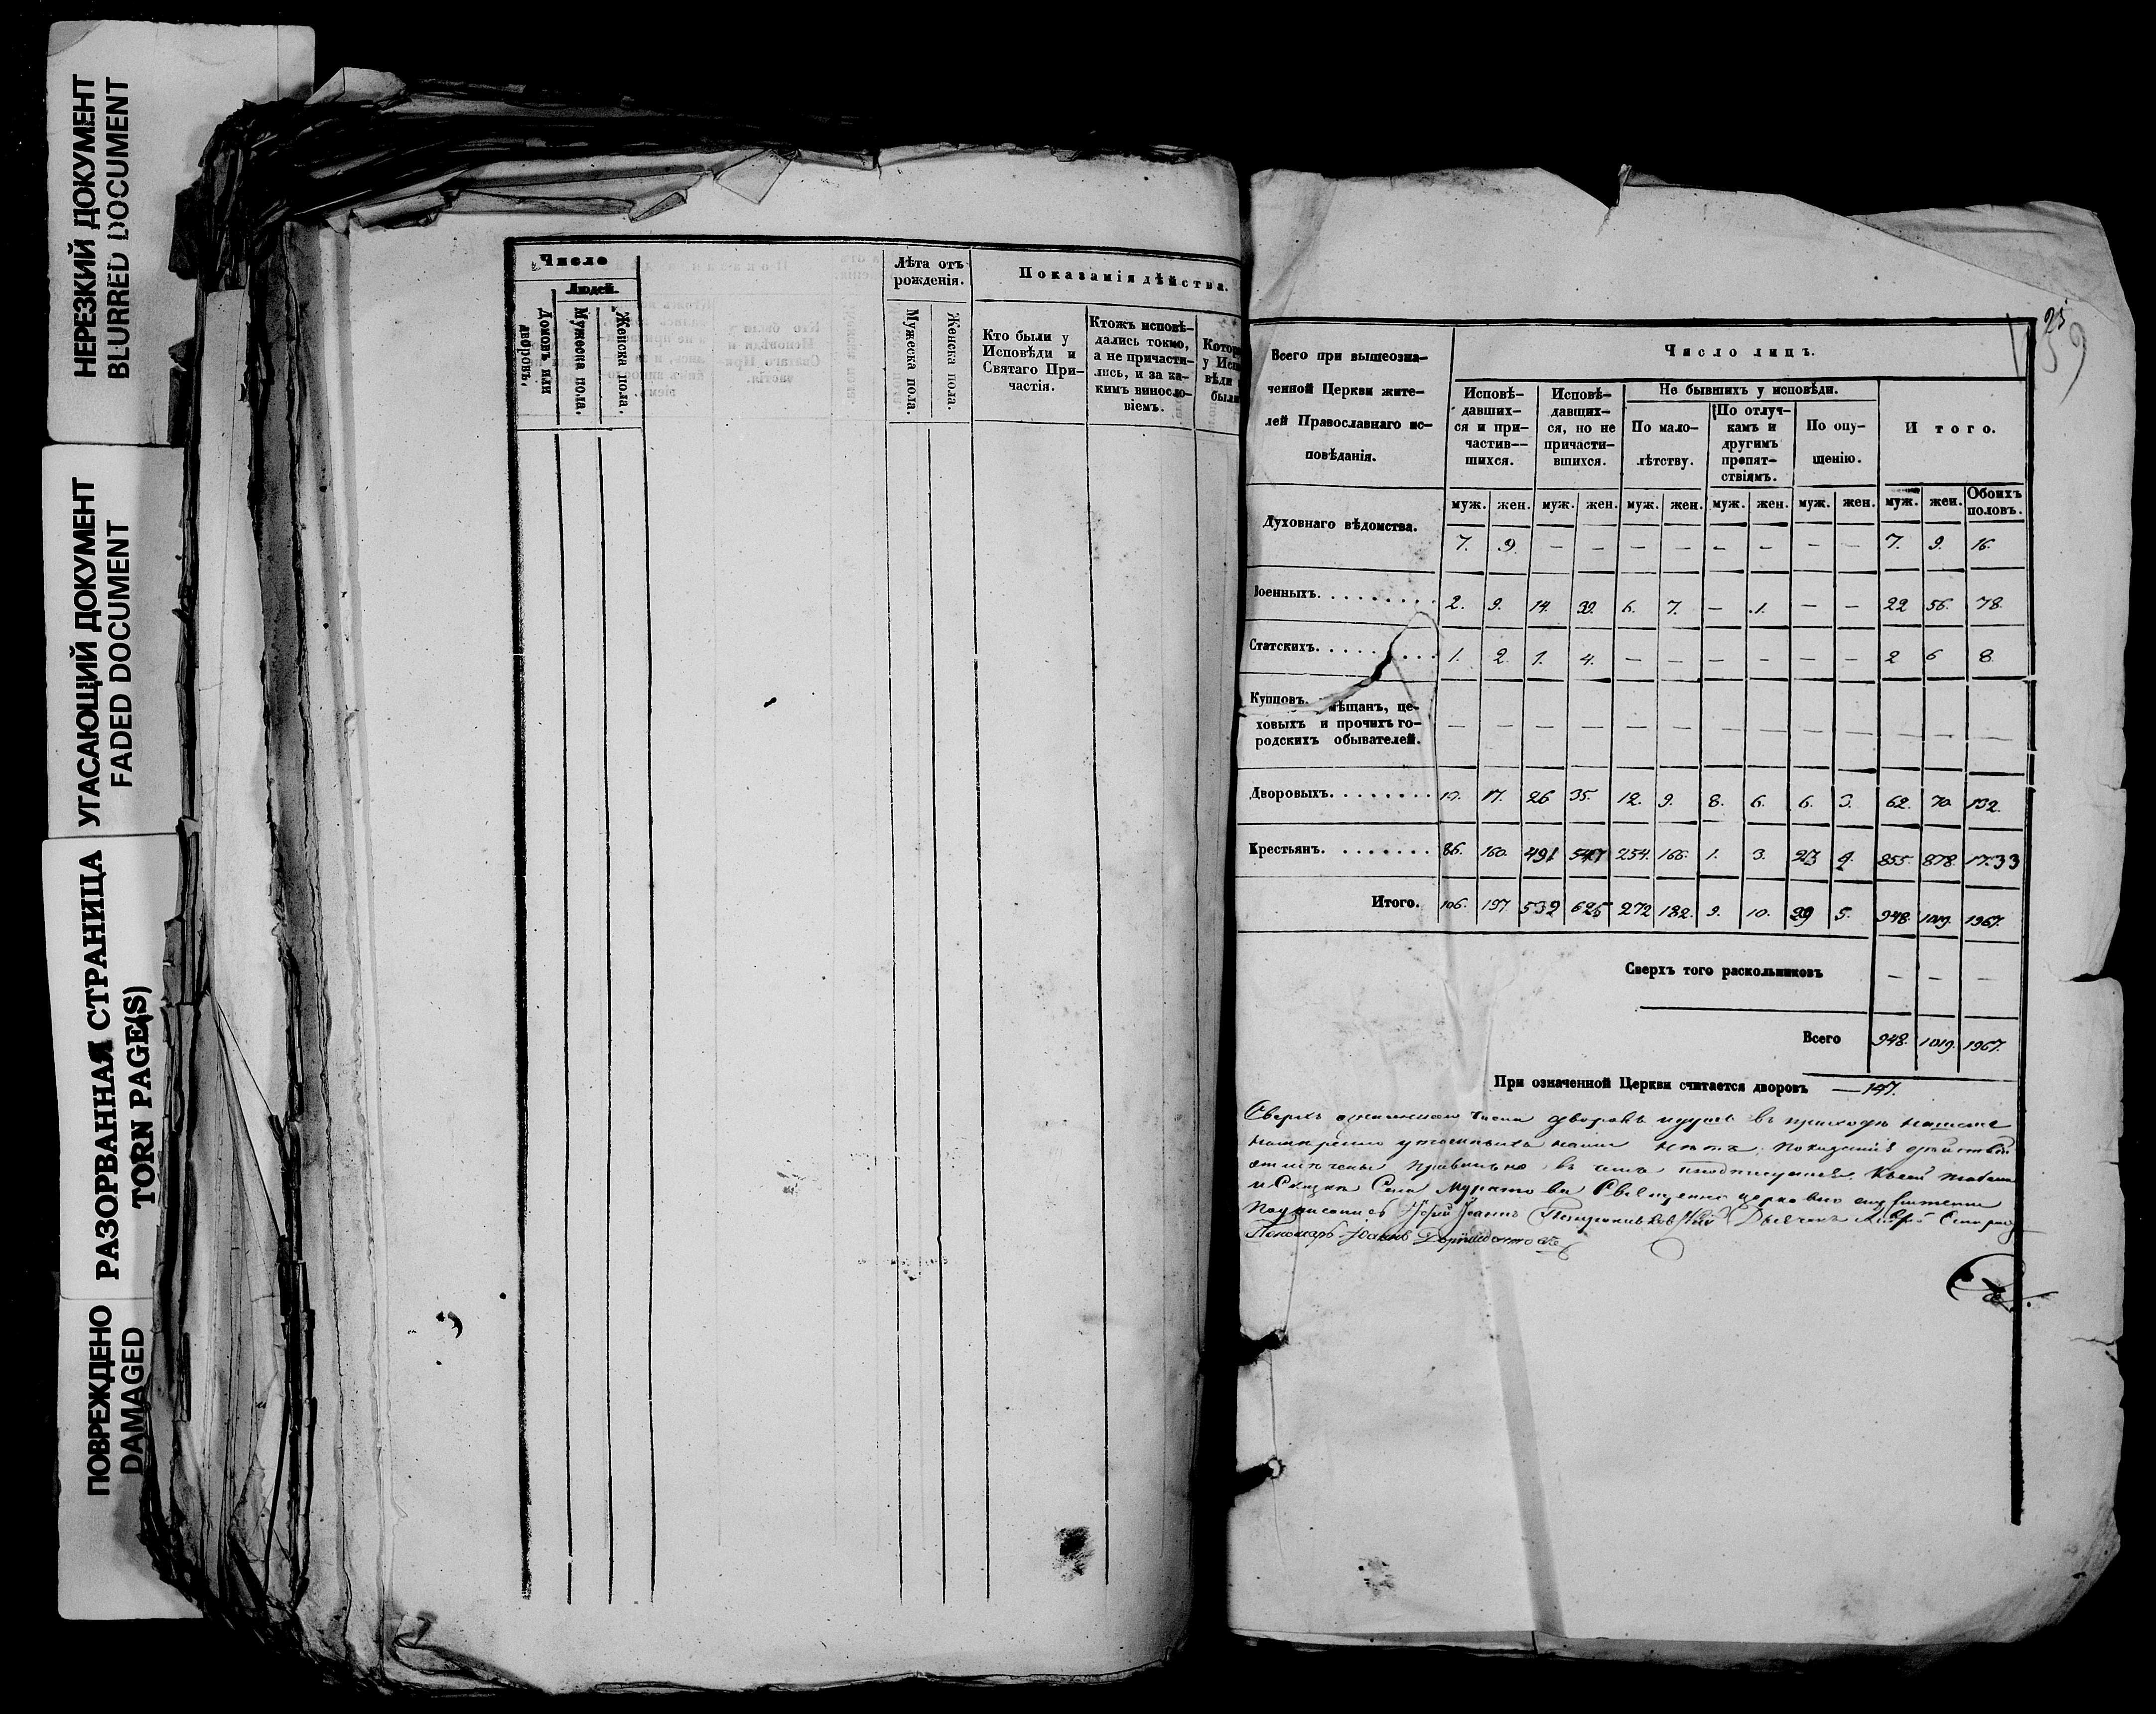 НЕРЕЗКИЙ ДОКУМЕНТ
BLURRED DOCUMENT
УГАСАЮЩИЙ ДОКУМЕНТ
FADED DOCUMENT
РАЗОРВАННАЯ СТРАНИЦА
TORN PAGE(S)
ПОВРЕЖДЕНО
DAMAGED
Число
Людей.
Домовъ или дворовъ.
Мужеска пола.
Женска пола.
Лѣта отъ
рожденія.
Мужеска пола.
Женска пола.
Показанія дѣйства.
Кто были у
Исповѣди и
Святаго При-
частія.
Ктожъ исповѣ-
дались токмо,
а не причасти-
лись, и за ка-
кимъ виносло-
віемъ.
Котор
у Исп
вѣди
были
25
59
Всего при вышеозна-
ченной Церкви жите-
лей Православнаго ис-
повѣданія.
Число лицъ.
Исповѣ-
давших-
ся и при-
частив-
шихся.
Исповѣ-
давщих-
ся, но не
причасти-
вшихся.
Не бывшихъ у исповѣди.
По мало-
лѣтству.
По отлуч-
камъ и
другимъ
препят-
ствіямъ.
По опу-
щенію.
Итого.
муж. жен. муж. жен. муж. жен. муж. жен. муж. жен. муж. жен. Обоихъ половъ.
Духовнаго вѣдомства. 7. 9. — — — — — — — — 7. 9. 16.
Военныхъ. 2. 9. 14. 39. 6. 7. — 1. — — 22 56. 78.
Статскихъ. 1. 2. 1. 4. — — — — — — 2 6 8
Купцовъ. мѣщанъ, це-
ховыхъ и прочихъ го-
родскихъ обывателей. — — — — — — — — — — — — —
Дворовыхъ. 10. 17. 26 35. 12. 9. 8. 6. 6. 3. 62. 70. 132.
Крестьянъ. 86. 160. 491 547 254. 166. 1. 3. 23 2. 855. 878. 1733
Итого. 106. 197. 532 625 272 182. 9. 10. 29 5. 948. 1019. 1967.
Сверхъ того раскольниковъ — — —
Всего 948. 1019. 1967.
При означенной Церкви считается дворовъ — 147.
Сверхъ означеннаго числа дворовъ и душъ въ приходѣ нашемъ
нѣтъ
отмѣчены правильно въ чемъ и подписуемся. Къ сей
Села Муратова Священно церковно служители
Подписались Іерей Іоаннъ
Пономарь Іоаннъ